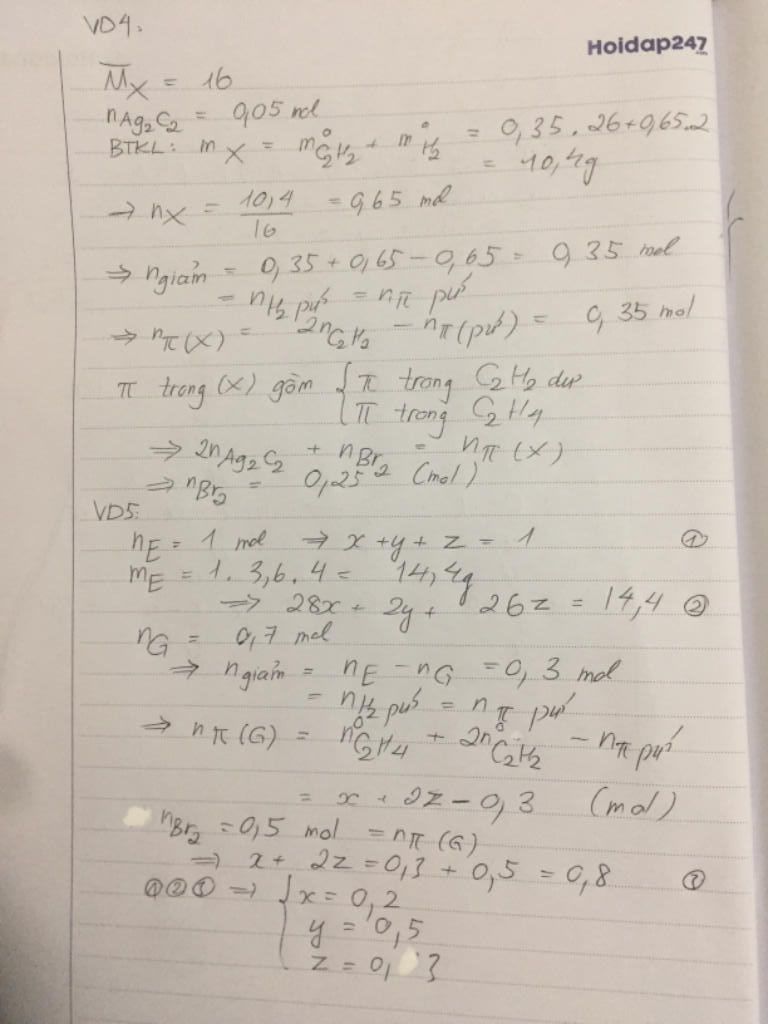 VD4:
Hoidap247
M̅x = 16
nAg2C2 = 0,05 mol
BTKL: mX = m°C2H2 + m°H2 = 0,35.26+0,65.2
= 10,4g
→ nX = 10,4/16 = 0,65 mol
⇒ ngiảm = 0,35 + 0,65 - 0,65 = 0,35 mol
= nH2 pứ = nπ pứ
⇒ nπ(X) = 2nC2H2 - nπ(pứ) = 0,35 mol
π trong (X) gồm { π trong C2H2 dư
π trong C2H4
⇒ 2nAg2C2 + nBr2 = nπ(X)
⇒ nBr2 = 0,25 (mol)
VD5:
nE = 1 mol ⇒ x + y + z = 1 ①
mE = 1.3,6.4 = 14,4g
⇒ 28x + 2y + 26z = 14,4 ②
nG = 0,7 mol
⇒ ngiảm = nE - nG = 0,3 mol
= nH2 pứ = nπ pứ
⇒ nπ(G) = n°C2H4 + 2n°C2H2 - nπ pứ
= x + 2z - 0,3 (mol)
nBr2 = 0,5 mol = nπ(G)
⇒ x + 2z = 0,3 + 0,5 = 0,8 ③
①②③ ⇒ { x = 0,2
y = 0,5
z = 0,3